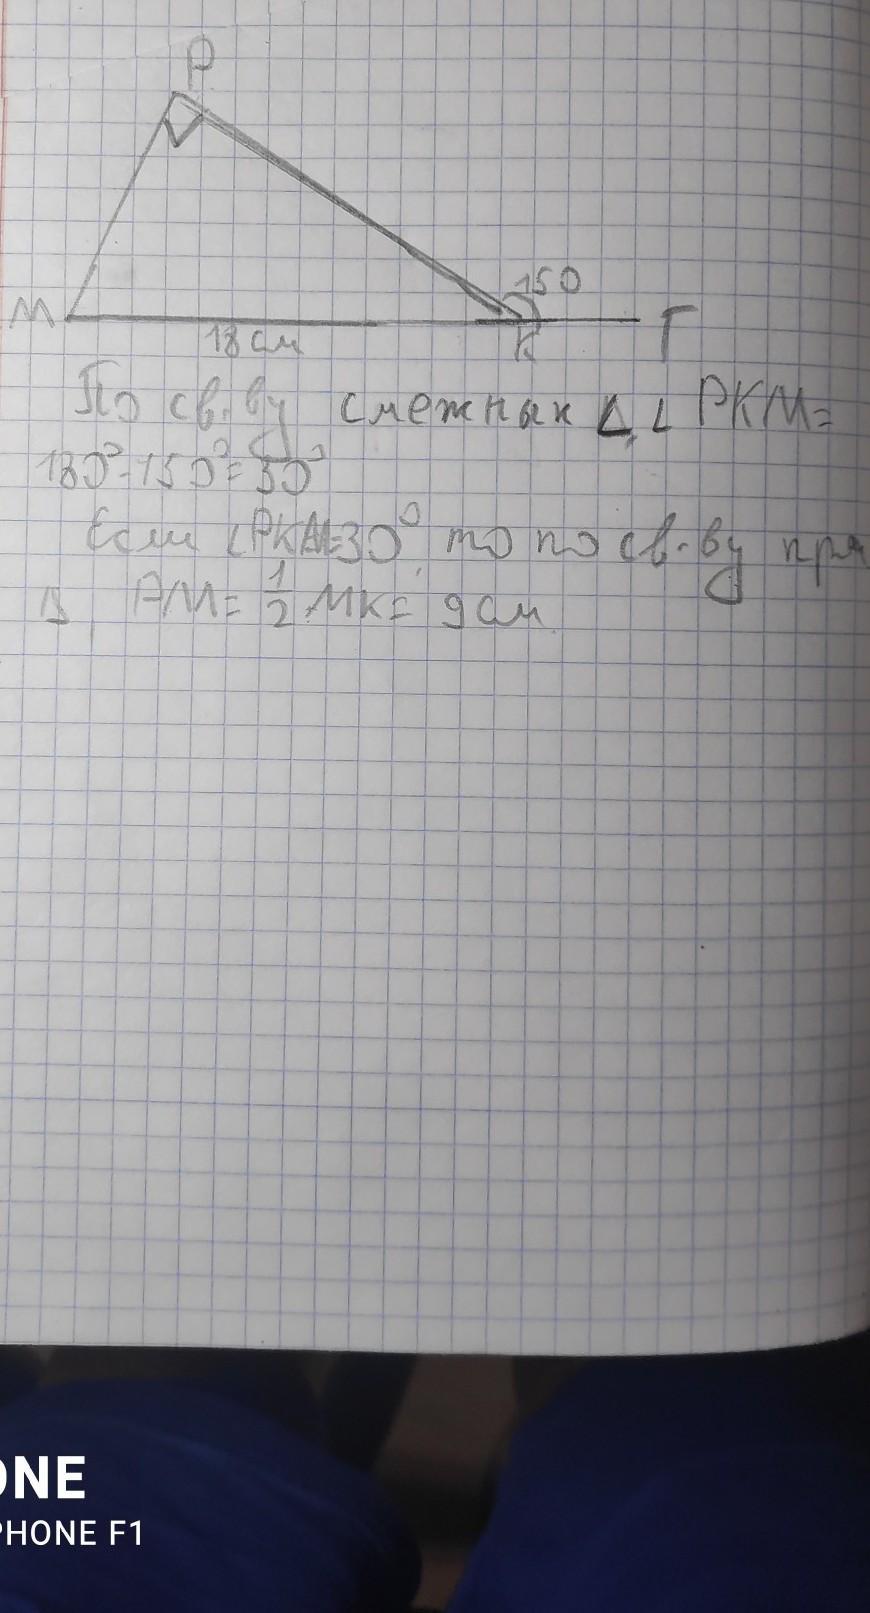 P
150
M
K
Г
18 см
По св.ву смежных ∆, ∠ PKM=
180°-150°=30°
Если ∠PKM=30°, то по св.ву пря
∆, PM= 1/2 MK= 9см
ONE
PHONE F1